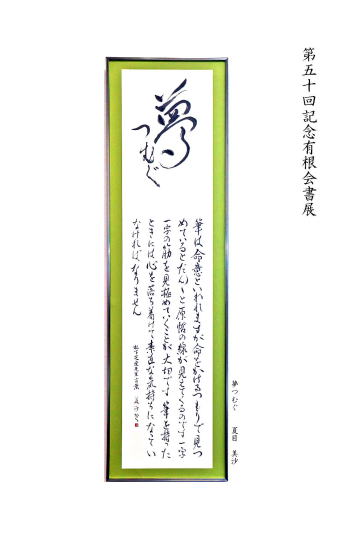 第五十回記念有根会書展
夢
つむぐ
筆は命意といわれますが命をかけるつもりで見つ
めているとだん〱と原帖の線が見えてくるのです一字
一字の筋を見極めていくことが大切です筆を持った
ときには心を落ち着けて素直な気持ちになってい
なければなりません
美沙書
夢つむぐ 夏目 美沙